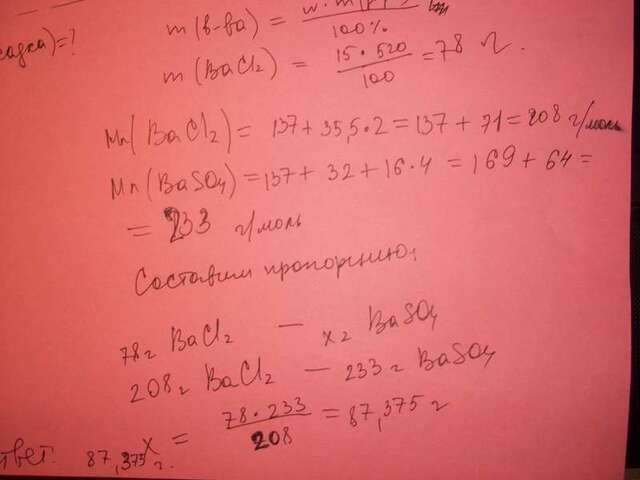 m(в-ва) = w·m(
100%
садка)=?
m(BaCl2) = 15·520/100 = 78 г.
Mr(BaCl2) = 137+35,5·2=137+71=208 г/моль
Mr(BaSO4)=137+32+16·4 =169+64=
= 233 г/моль
Составим пропорцию:
78г BaCl2 — x г BaSO4
208г BaCl2 — 233 г BaSO4
x = 78·233/208 = 87,375 г
твет: 87,375 г.